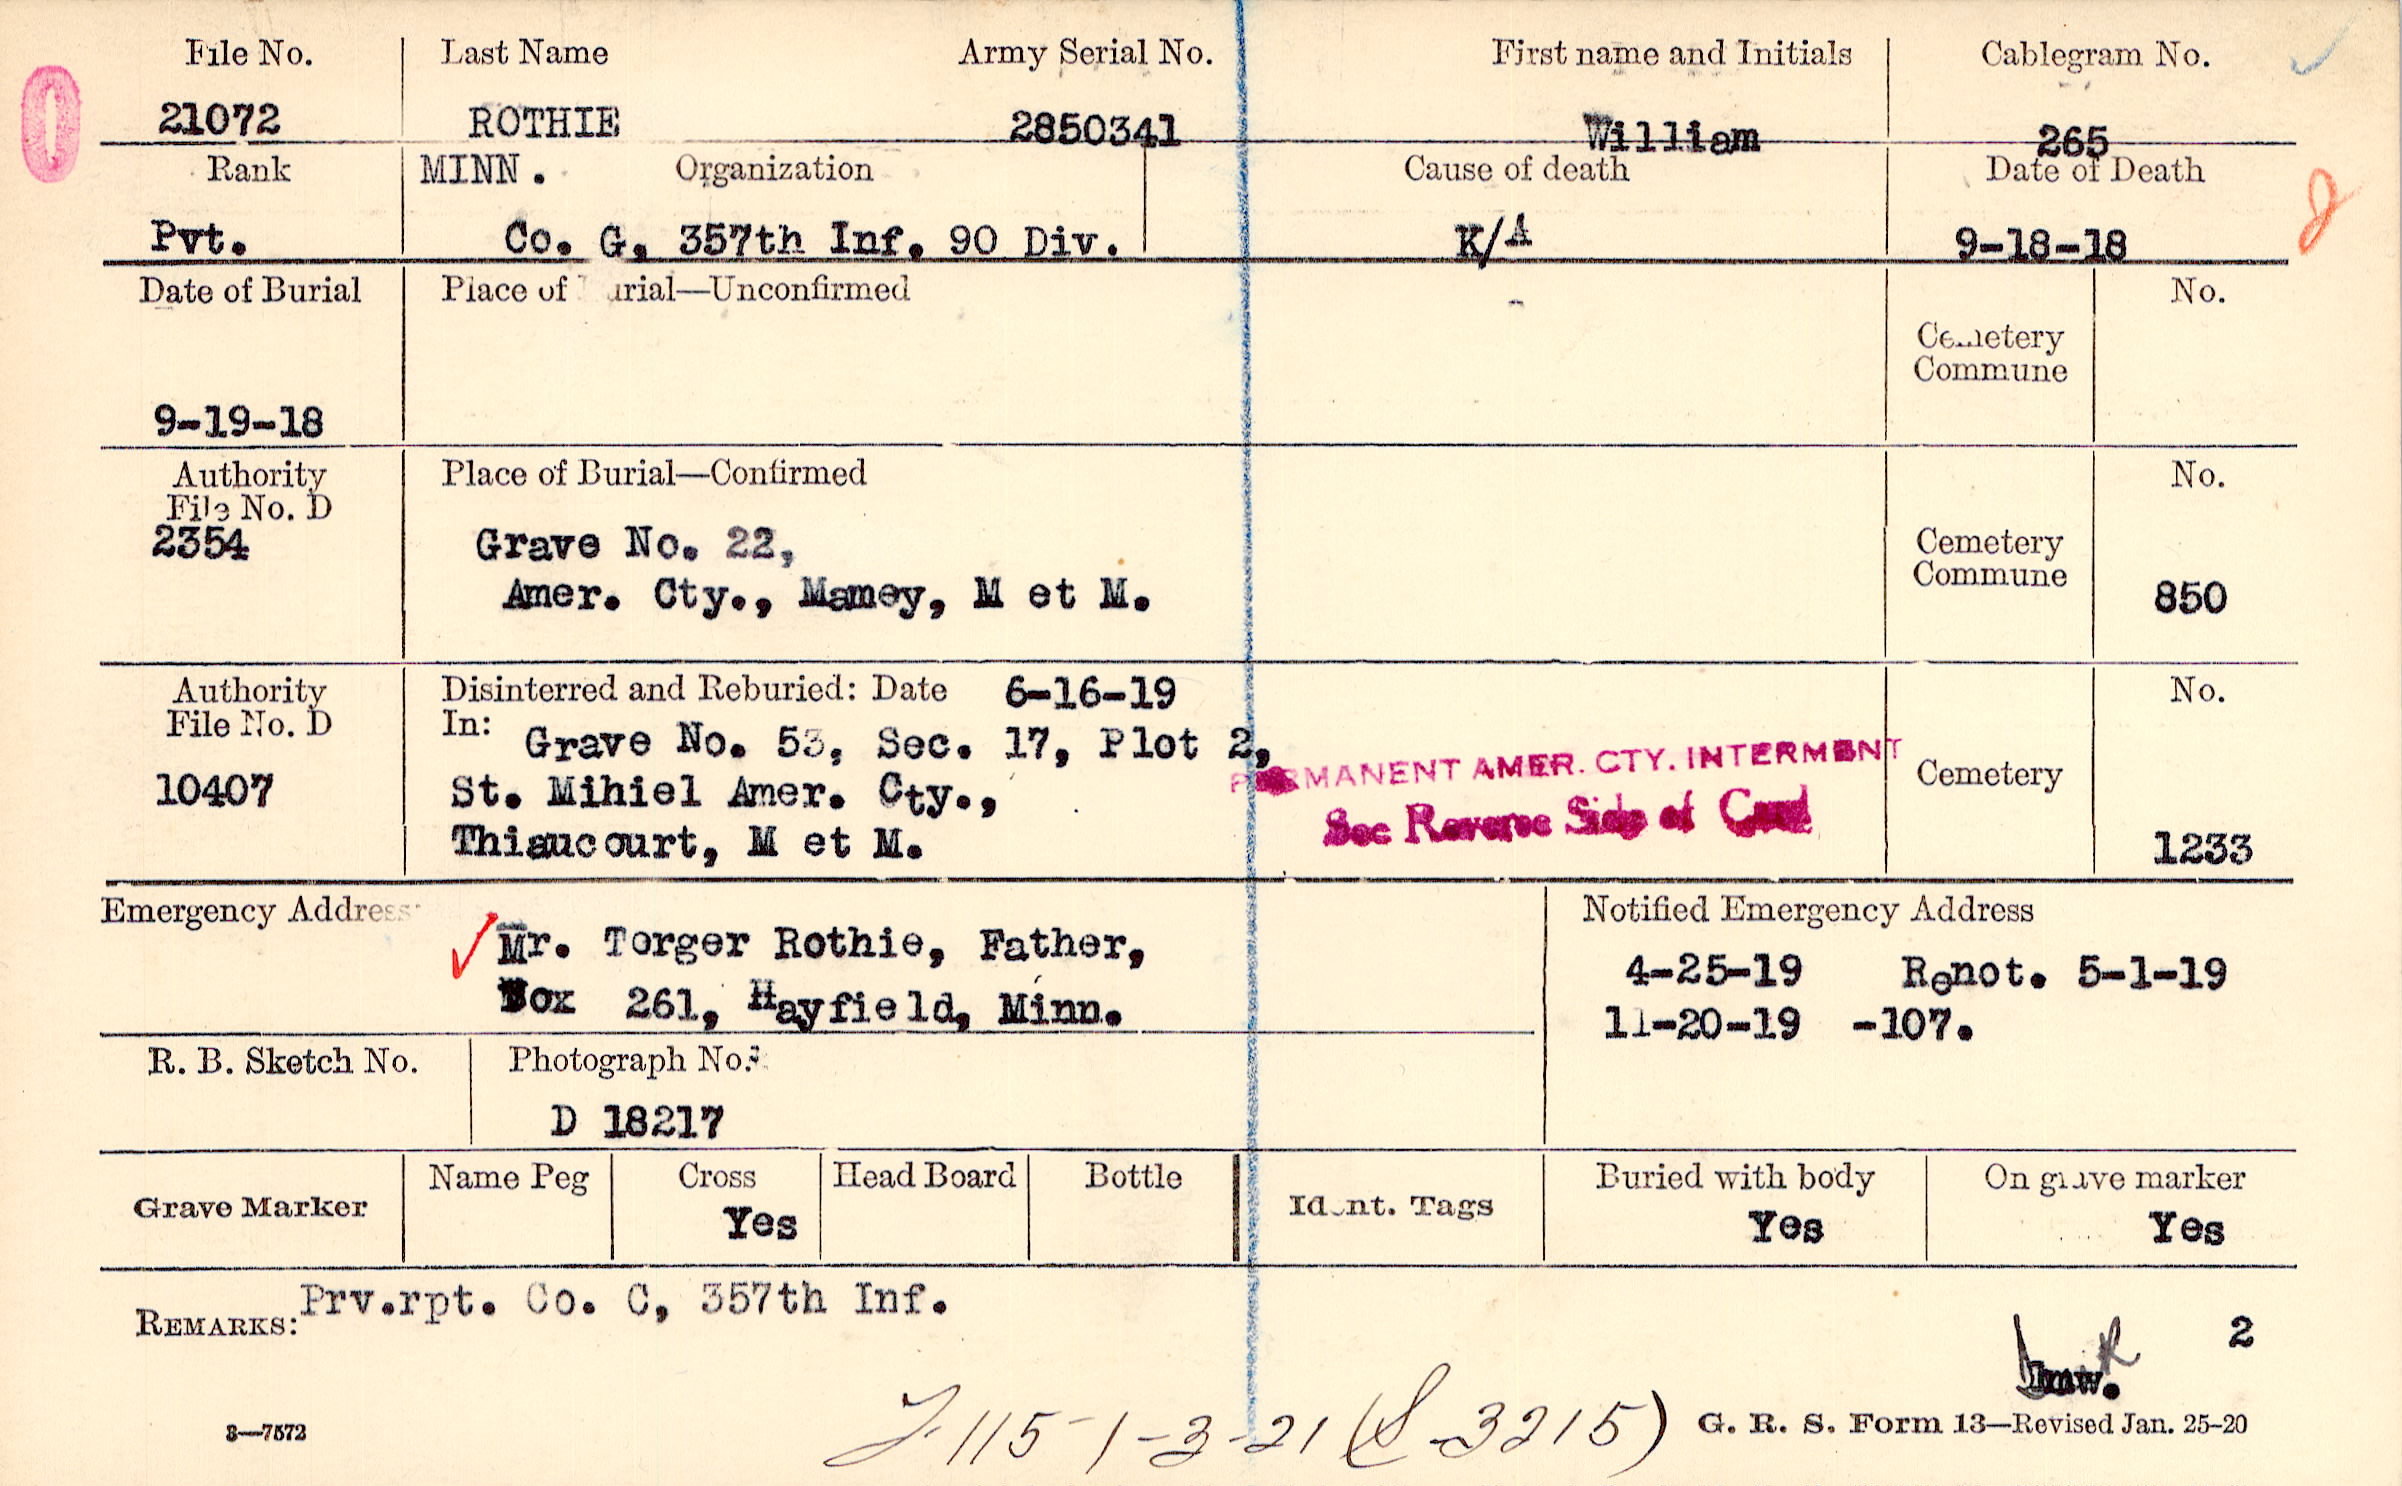 File No. Last Name Army Serial No. First name and Initials Cablegram No.
21072 ROTHIE 2850341 William 265
Rank MINN. Organization Cause of death Date of Death
Pvt. Co. G, 357th Inf. 90 Div. K/A 9-18-18
Date of Burial Place of Burial—Unconfirmed No.
Cemetery
Commune
9-19-18
Authority Place of Burial—Confirmed No.
File No. D
2354 Grave No. 22, Cemetery
Amer. Cty., Mamey, M et M. Commune 850
Authority Disinterred and Reburied: Date 6-16-19 No.
File No. D In: Grave No. 53, Sec. 17, Plot 2,
PERMANENT AMER. CTY. INTERMENT
10407 St. Mihiel Amer. Cty., Cemetery
See Reverse Side of Card
Thiaucourt, M et M. 1233
Emergency Address Notified Emergency Address
Mr. Torger Rothie, Father, 4-25-19 Renot. 5-1-19
Box 261, Hayfield, Minn. 11-20-19 -107.
R. B. Sketch No. Photograph No.
D 18217
Grave Marker Name Peg Cross Head Board Bottle Ident. Tags Buried with body On grave marker
Yes Yes Yes
REMARKS: Prv.rpt. Co. C, 357th Inf.
2
3—7572 115-1-3-21 (S-3215) G. R. S. Form 13—Revised Jan. 25-20